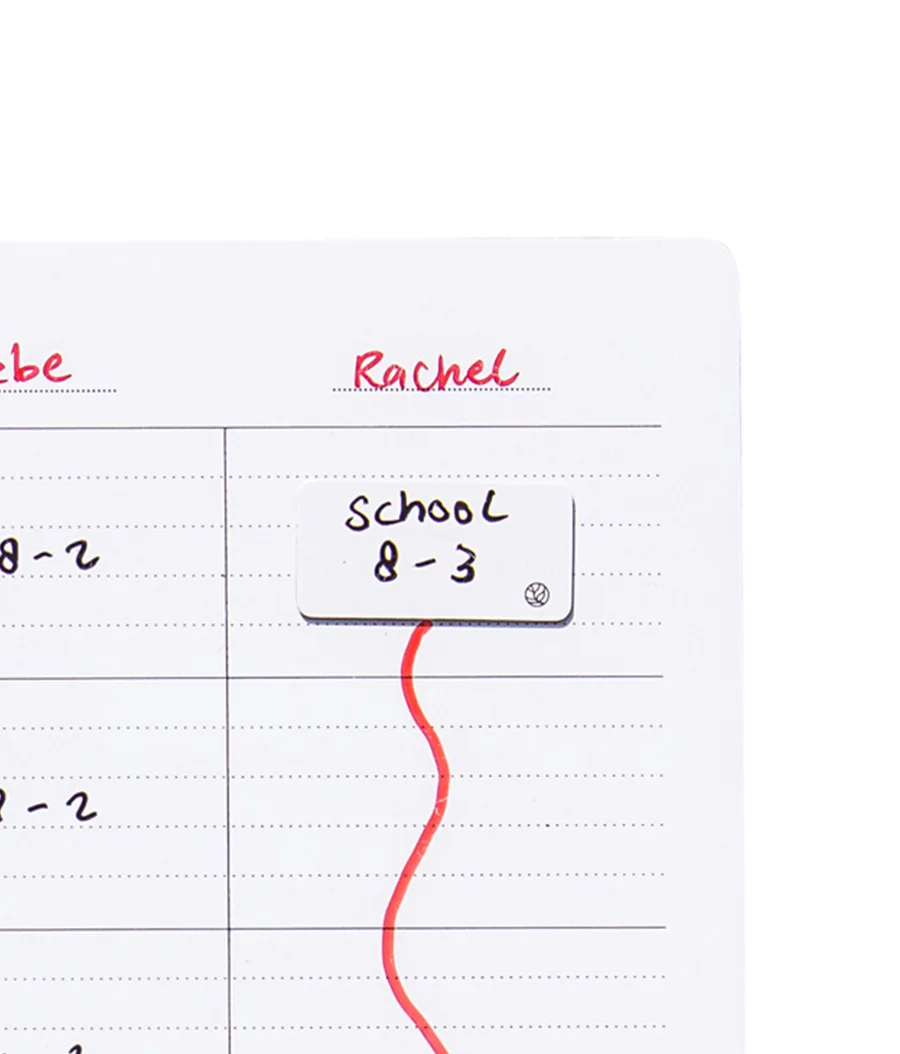 Rachel
School
8 - 3
8 - 2
- 2